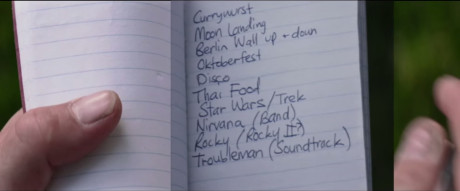 Currywurst
Moon Landing
Berlin Wall up + down
Oktoberfest
Disco
Thai Food
Star Wars/Trek
Nirvana (Band)
Rocky (Rocky II?)
Troubleman (Soundtrack)